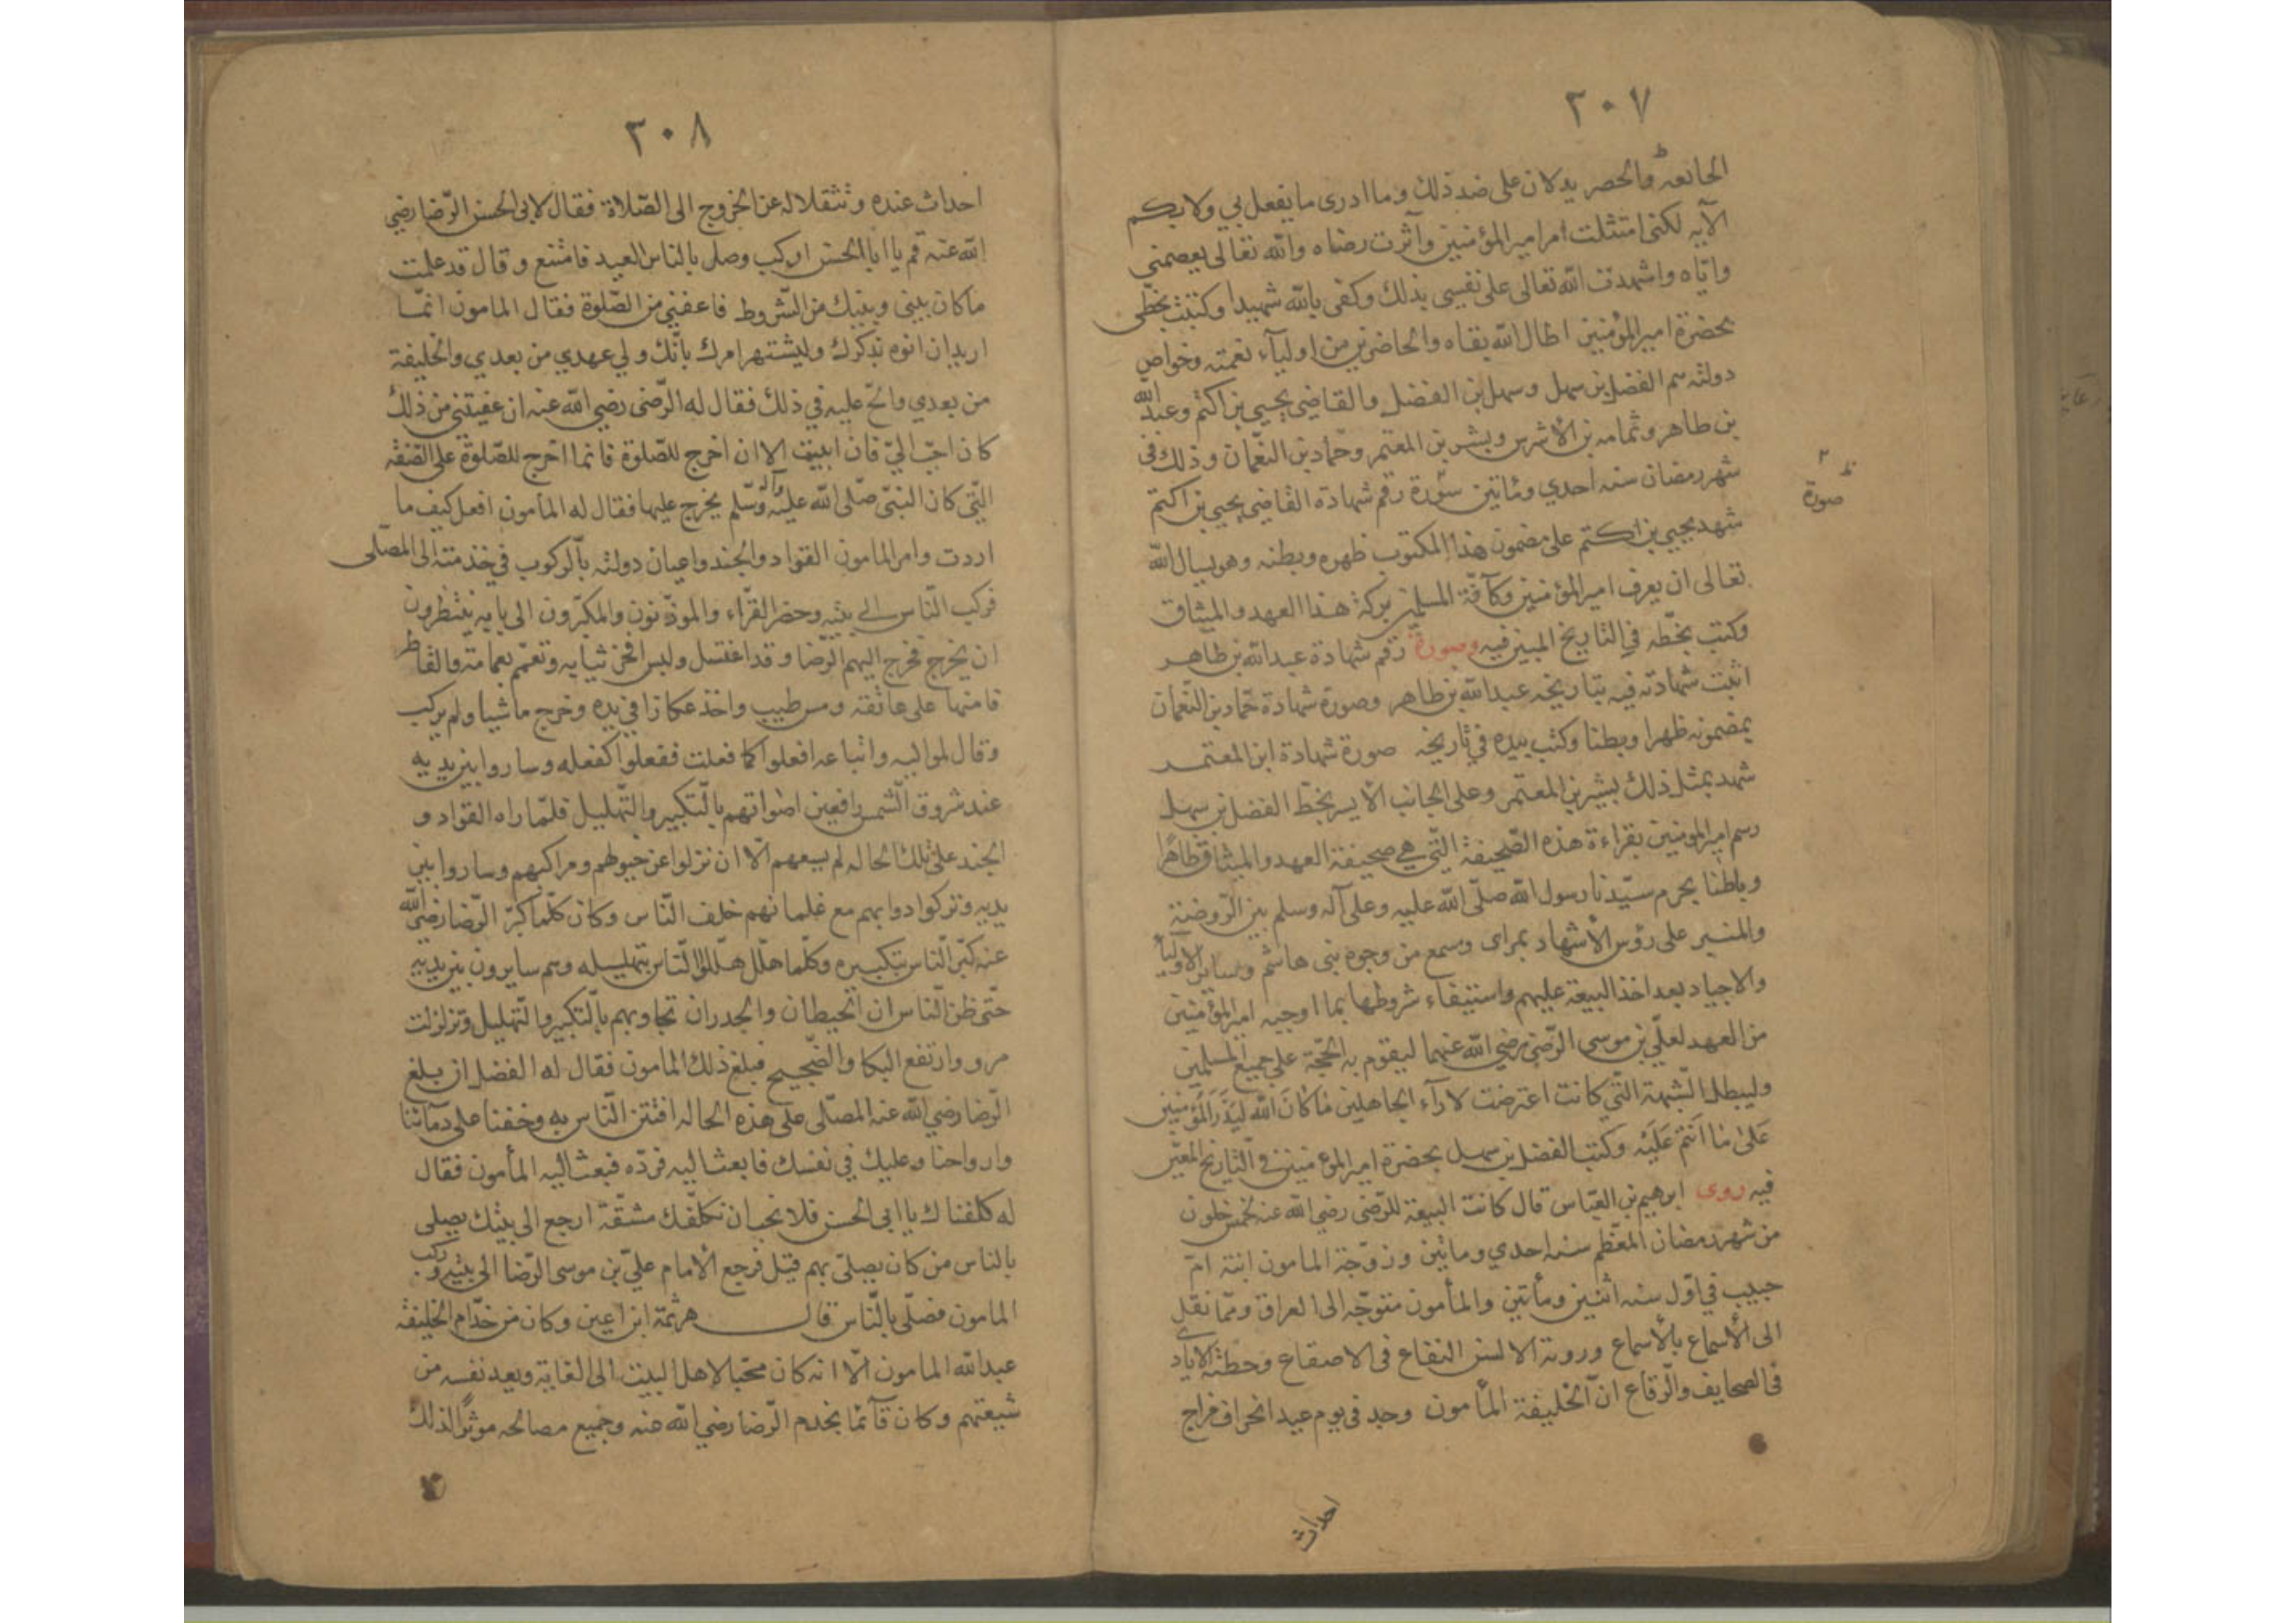 ٣٠٧
الجامعه والحصر يدلان على ضد ذلك وما ادرى ما يفعل بي ولا بكم
الآيه لكنى امتثلت امر امير المؤمنين وآثرت رضاه والله تعالى يعصمنى
واياه واشهدت الله تعالى على نفسى بذلك وكفى بالله شهيدا وكتبت بخطى
بحضرة امير المؤمنين اطال الله بقاه والحاضرين من اولياء نعمته وخواص
دولته سم الفضل بن سهل وسهل بن الفضل والقاضي يحيى بن اكثم وعبد الله
بن طاهر وثمامه بن الأشرس وبشر بن المعتمر وحماد بن النعمان وذلك في
شهر رمضان سنه احدي ومائتين سورة رقم شهادة القاضي يحيى بن اكثم
ظ صورة
شهد يحيى بن اكثم على مضمون هذا المكتوب ظهره وبطنه وهو يسال الله
تعالى ان يعرف امير المؤمنين وكآفة المسلمين بركة هذا العهد والميثاق
وكتب بخطه في التاريخ المبين فيه وصورة رقم شهادة عبد الله بن طاهر
اثبت شهادته فيه بتاريخه عبد الله بن طاهر وصورة شهادة حماد بن النعمان
بمضمونه ظهرا وبطنا وكتب بيده في تاريخه صورة شهادة ابن المعتمر
شهد بمثل ذلك بشير بن المعتمر وعلى الجانب الأيسر بخط الفضل بن سهل
رسم امير المومنين بقراءة هذه الصحيفة التي هي صحيفة العهد والميثاق ظاهرا
وباطنا بحرم سيدنا رسول الله صلى الله عليه وعلى آله وسلم بين الروضة
والمنبر على رؤس الأشهاد بمراى وسمع من وجوه بنى هاشم وساير الاوليآ
والاجياد بعد اخذ البيعة عليهم واستيفاء شروطها بما اوجبه امير المؤمنين
من العهد لعلي بن موسى الرضى رضي الله عنهما ليقوم به الحجة على جميع المسلمين
وليبطل الشبهة التي كانت اعترضت لارآء الجاهلين مَا كَانَ الله ليَذَرَ المُؤمنين
عَلىٰ مَا اَنتُم عَلَيْه وكتب الفضل بن سهل بحضرة امير المؤمنين في التاريخ المعين
فيه روى ابرهيم بن العباس قال كانت البيعة للرضى رضي الله عنه لخمس خلون
من شهر رمضان المعظم سنه احدي وماتين وزوجة المامون ابنته ام
حبيب في اول سنه اثنين ومأتين والمأمون متوجه الى العراق ومما نقل
الى الأسماع بالأسماع وروته الالسن البقاع فى الاصقاع وخطته الاياد ي
فى الصحايف والرقاع ان الخليفة المأمون وجد في يوم عيد انحراف مزاج
احداث
٣٠٨
احداث عنده وتثقلا له عن الخروج الى الصلاة فقال لابى الحسن الرضا رضي
الله عنه قم يا ابا الحسن اركب وصل بالناس العيد فامتنع وقال قد علمت
ما كان بينى وبينك من الشروط فاعفنى من الصلوة فقال المامون انما
اريد ان انوه بذكرك وليشتهر امرك بأنك ولي عهدي من بعدي والخليفة
من بعدي والح عليه في ذلك فقال له الرضى رضي الله عنه ان عفيتنى من ذلك
كان احب الي فان ابيت الا ان اخرج للصلوة فانما اخرج للصلوة على الصفة
التي كان النبي صلى الله عليه وآله وسلم يخرج عليها فقال له المأمون افعل كيف ما
اردت وامر المامون القواد والجند واعيان دولته بالركوب في خدمته الى المصلى
فركب الناس الى بيته وحضر القراء والموذنون والمكبرون الى بابه ينتظرون
ان يخرج فخرج اليهم الرضا وقد اغتسل ولبس افخر ثيابه وتعمم بعمامة والقا طر
فا منها على عاتقه ومس طيب واخذ عكازا في يده وخرج ماشيا ولم يركب
وقال لمواليه واتباعه افعلوا كما فعلت ففعلوا كفعله وساروا بين يديه
عند شروق الشمس رافعين اصواتهم بالتكبير والتهليل فلما راه القواد و
الجند على تلك الحاله لم يسعهم الا ان نزلوا عن خيولهم ومراكبهم وساروا بين
يديه وتركوا دوابهم مع غلمانهم خلف الناس وكان كلما كبر الرضا رضي الله
عنه كبر الناس بتكبيره وكلما هلل هللوا الناس بتهليله وسم سايرون بين يديه
حتى ظن الناس ان الحيطان والجدران تجاوبهم بالتكبير والتهليل وتزلزلت
مرو وارتفع البكا والضجيج فبلغ ذلك المامون فقال له الفضل ان بلغ
الرضا رضي الله عنه المصلى على هذه الحاله افتتن الناس به وخفنا على دمآئنا
وارواحنا وعليك في نفسك فابعث اليه فرده فبعث اليه المأمون فقال
له كلفناك يا ابى الحسن فلا نحب ان نكلفك مشقة ارجع الى بيتك يصلى
بالناس من كان يصلي بهم قبل فرجع الأمام علي بن موسى الرضا الى بيته وركب
المامون فصلى بالناس قال هرثمة ابن اعين وكان من خدام الخليفة
عبد الله المامون الا انه كان محبا لاهل البيت الى الغاية ويعد نفسه من
شيعتهم وكان قآئما بخدم الرضا رضي الله عنه وجميع مصالحه موثرا لذلك